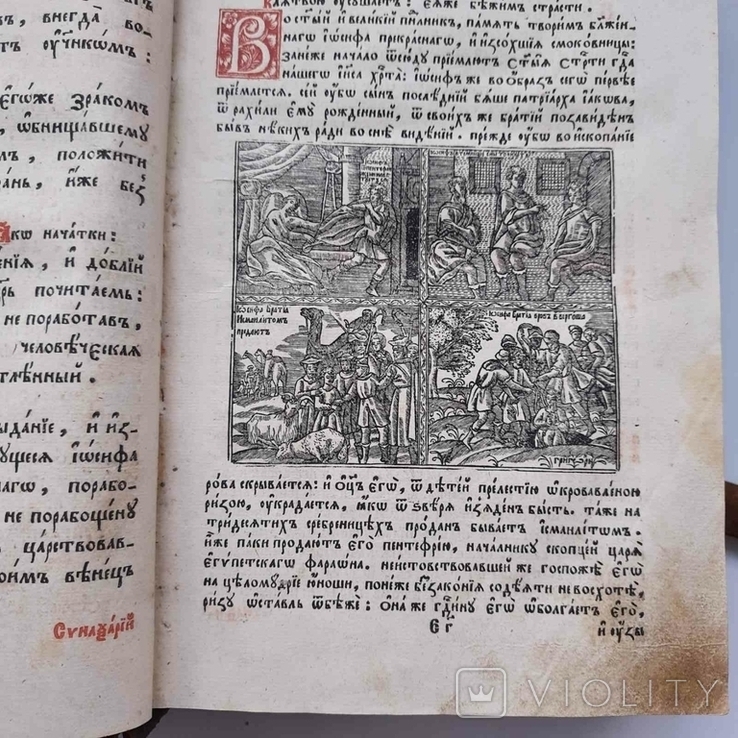 ъ, внегда во-
тъ оу҆чн҃кѡмъ :
є҆гѡже зракомъ
ѡ҆бнищавшему
мъ, положити
рань, и҆же без
Ꙗкѡ начатки :
ения, и҆ доблїй
рь почитаемъ :
не поработавъ,
человѣческая
тлѣнный .
ыдание, и҆ из-
ущеся і҆ѡсифа
наго, порабо-
не порабощену
царствовав-
оимъ вѣнецъ
Сѷнаѯарїй
каѧтвою ѡсушаетъ : еѧже бѣжимъ страсти.
Во ст҃ый и҆ великїй пн҃лникъ, память творимъ бл҃жен-
нагѡ і҆ѡсифа прекраснагѡ, и҆ изсохшїя смоковницы :
занеже начало ѿсюду прїемлютъ ст҃ыя стрⷭ҇ти гдⷭ҇а
нашегѡ і҆и҃са хрⷭ҇та : і҆ѡсифъ же во ѡбразъ єгѡ первѣе
прїемлется. сїй оу҆бѡ сынъ послѣднїй бяше патриарха і҆акѡва,
ѿ рахили ему рожденный, ѿ своихъ же братїй позавидѣнъ
бывъ нѣкихъ ради во снѣ видѣнїй. прежде оу҆бѡ во ископанїе
Іѡсифа братіа
Исмаилтомъ
продаютъ
Іѡсифа братіа
григори
рова скрывается : и҆ оц҃ъ єгѡ, ѿ дѣтей прелестїю ѡкровавленою
ризою, оу҆крадается, ꙗкѡ ѿ ѕвѣря и҆зяденъ бысть. таже на
тридесятихъ сребреницѣхъ проданъ бываетъ исмаилтѡмъ.
и҆же паки продаютъ єгѡ пентефрїю, началнику скопцей царя
єгѷпетскагѡ фараѡна. неистовствовавшей же госпожѣ єгѡ
на цѣломудрїе юноши, понеже беззаконїя содѣяти не восхотѣ,
ризу ѡставль ѿбѣже : ѻна же гдⷭ҇ину єгѡ ѡболгаетъ єгѡ,
и҆ оу҆зы
VIOLITY